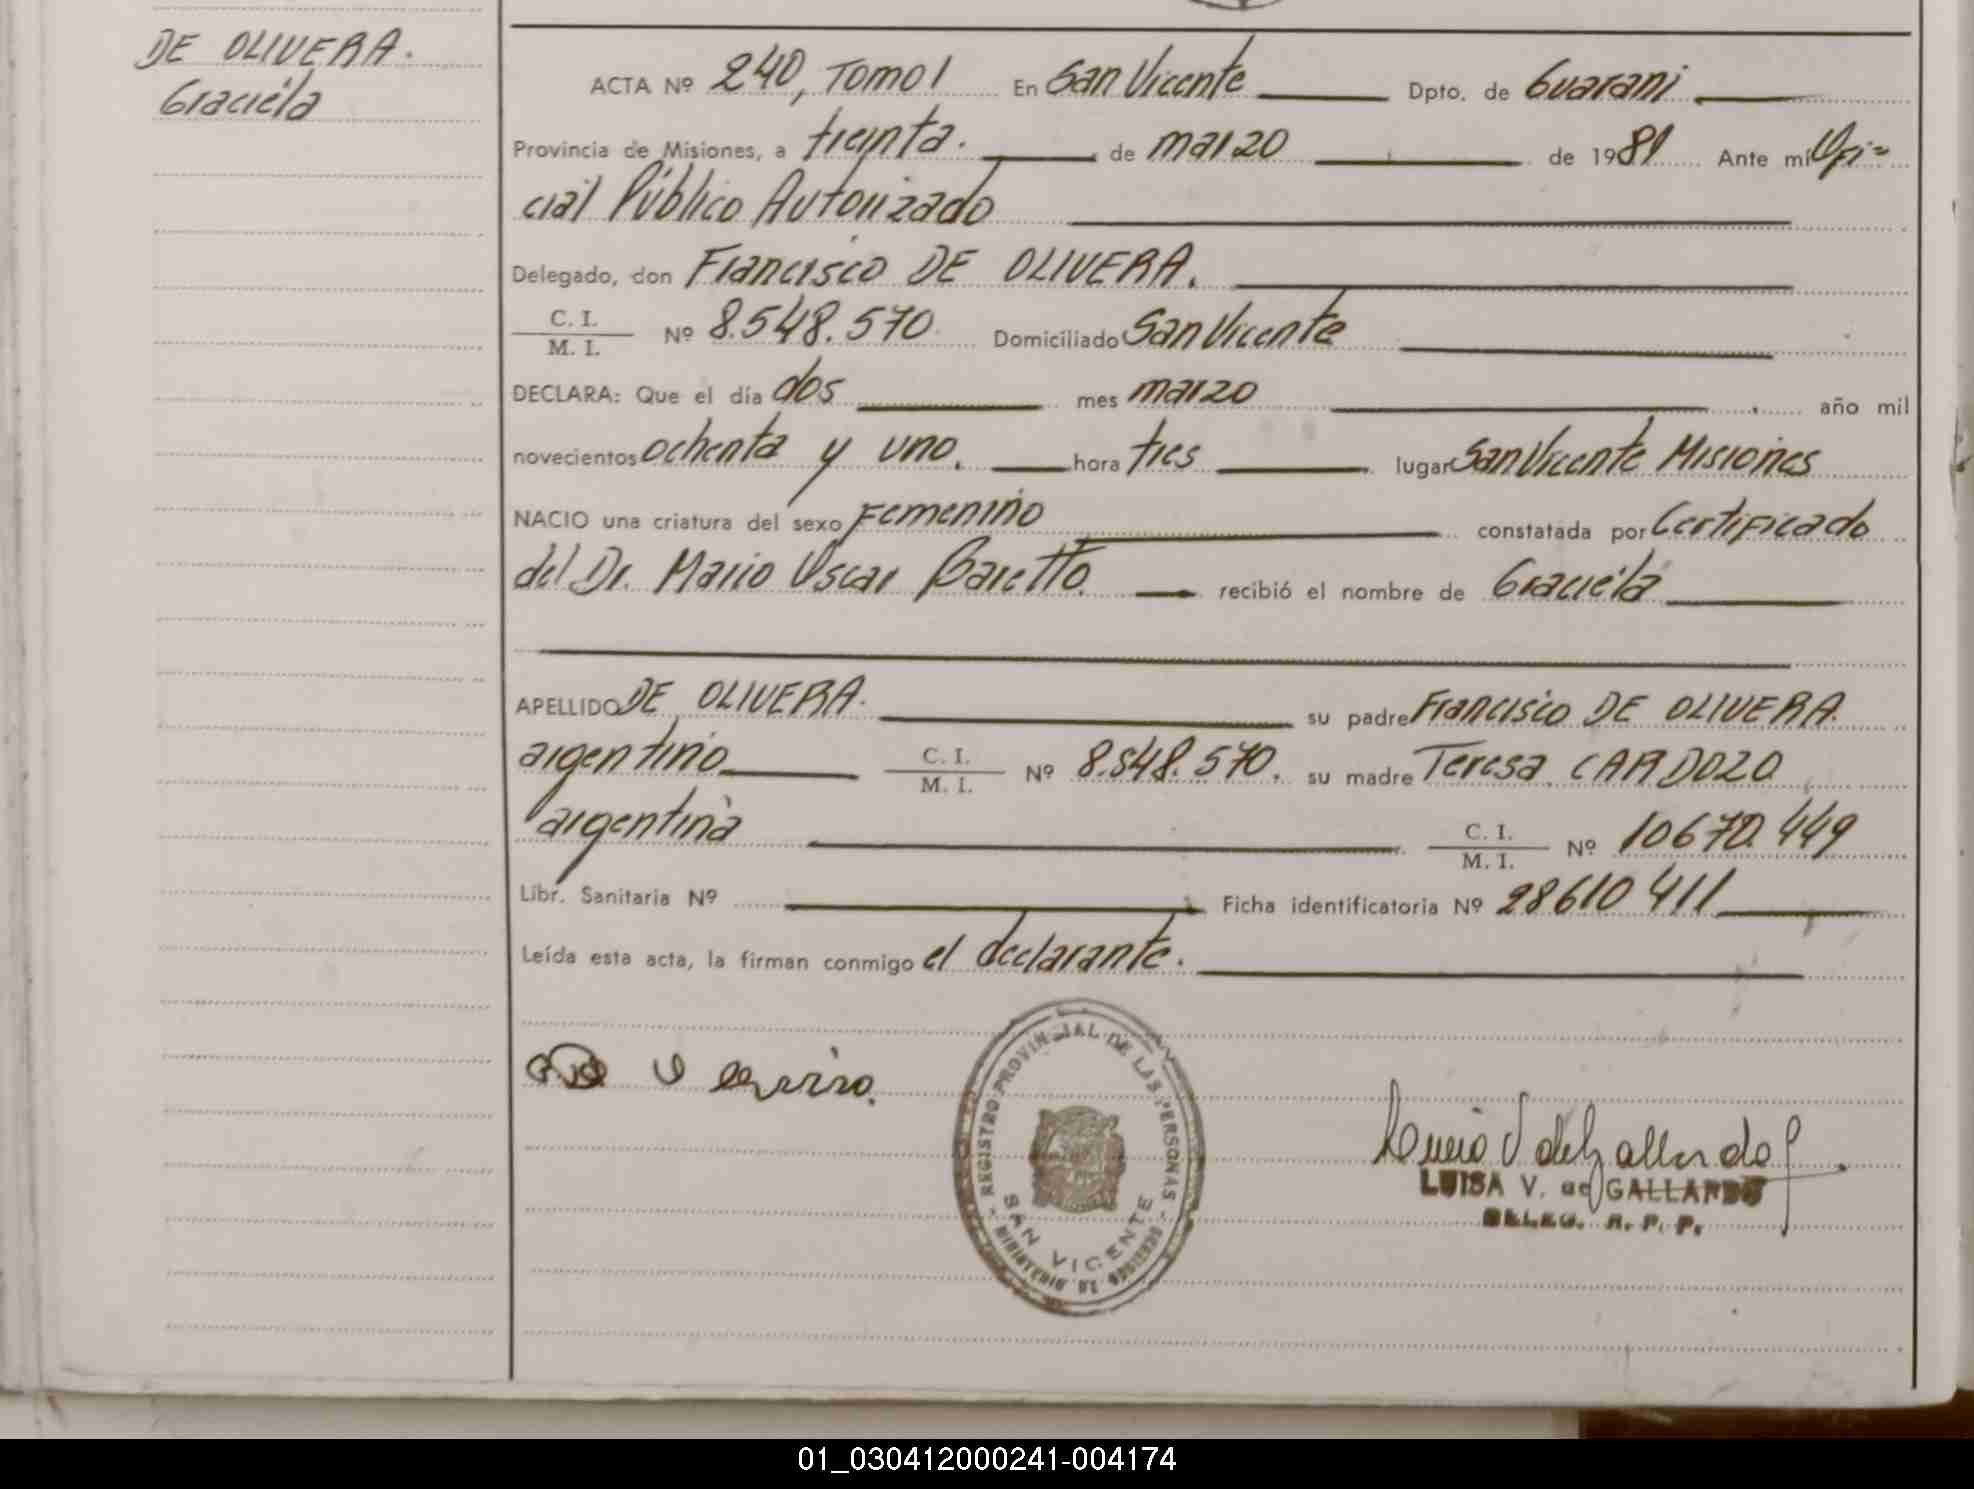 DE OLIVERA.
Graciela
ACTA Nº 240, Tomo 1 En San Vicente Dpto. de Guarani
Provincia de Misiones, a treinta. de marzo de 1981 Ante mí Ofi=
cial Público Autorizado
Delegado, don Francisco DE OLIVERA.
C. I.
M. I. Nº 8.548.570 Domiciliado San Vicente
DECLARA: Que el día dos mes marzo año mil
novecientos ochenta y uno. hora tres lugar San Vicente Misiones
NACIO una criatura del sexo Femenino constatada por Certificado
del Dr. Mario Oscar Baretto. recibió el nombre de Graciela
APELLIDO DE OLIVERA. su padre Francisco DE OLIVERA.
argentino C. I.
M. I. Nº 8.548.570. su madre Teresa CARDOZO
argentina C. I.
M. I. Nº 10670.449
Libr. Sanitaria Nº Ficha identificatoria Nº 28610411
Leída esta acta, la firman conmigo el declarante.
REGISTRO PROVINCIAL DE LAS PERSONAS
SAN VICENTE
LUISA V. de GALLARDO
DELEG. R. P. P.
01_030412000241-004174